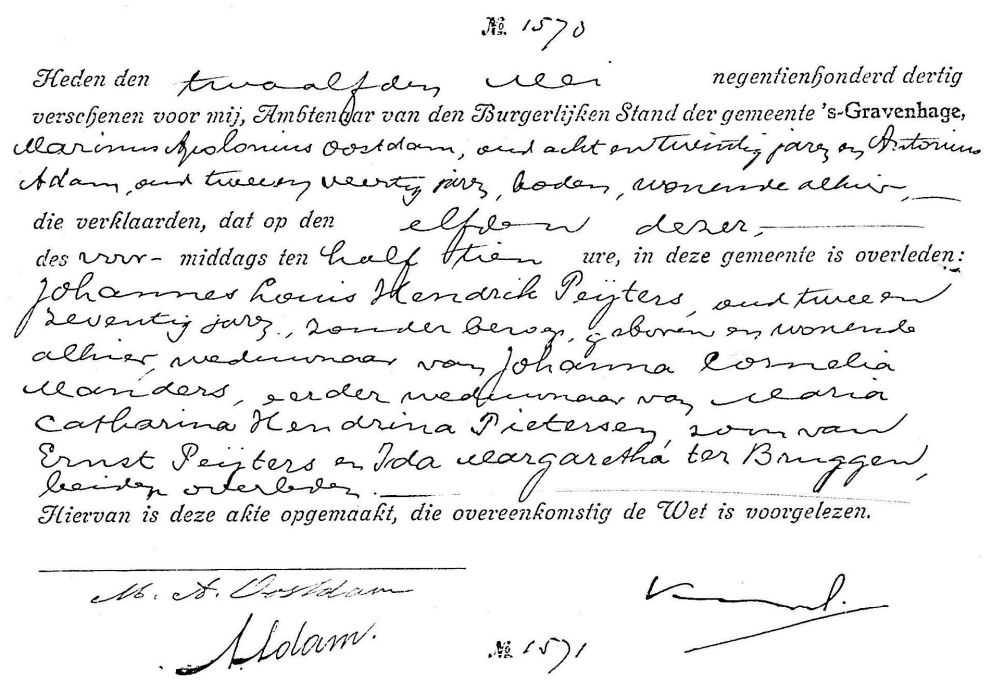 № 1570
Heden den twaalfden Mei negentienhonderd dertig
verschenen voor mij, Ambtenaar van den Burgerlijken Stand der gemeente 's-Gravenhage,
Marinus Apolonius Oostdam, oud acht en twintig jaren en Antonius
Adam, oud twee en veertig jaren, boden, wonende alhier,
die verklaarden, dat op den elfden dezer,
des voor- middags ten half tien ure, in deze gemeente is overleden:
Johannes Louis Hendrik Peijters, oud twee en
zeventig jaren, zonder beroep, geboren en wonende
alhier, weduwnaar van Johanna Cornelia
Manders, eerder weduwnaar van Maria
Catharina Hendrina Pietersen, zoon van
Ernst Peijters en Ida Margaretha ter Bruggen,
beiden overleden.
Hiervan is deze akte opgemaakt, die overeenkomstig de Wet is voorgelezen.
M. A. Oostdam
A. Adam.
№ 1571